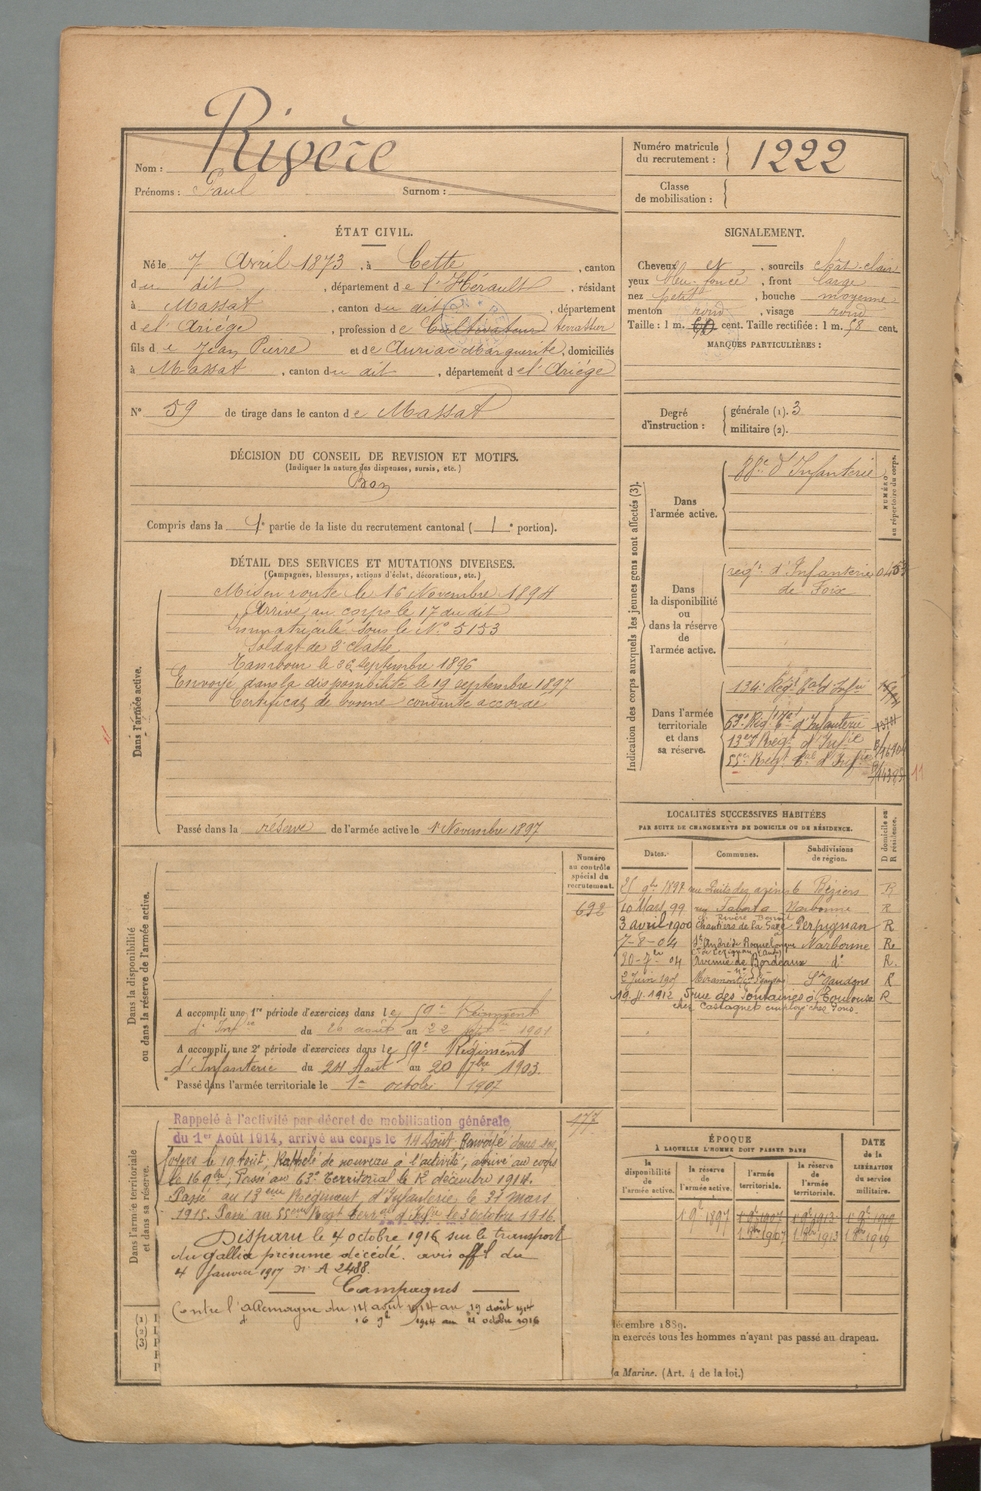 Nom : Rivère
Prénoms : Paul Surnom :
Numéro matricule du recrutement : 1222
Classe de mobilisation :
ÉTAT CIVIL.
Né le 7 Avril 1873, à Cette, canton
du dit, département de l'Hérault, résidant
à Massat, canton du dit, département
de l'Ariège, profession de Cultivateur terrassier
fils de Jean Pierre et de Auriac Marguerite, domiciliés
à Massat, canton du dit, département de l'Ariège
N° 59 de tirage dans le canton de Massat
SIGNALEMENT.
Cheveux et, sourcils chât-clair
yeux bleu-foncé, front large
nez petit, bouche moyenne
menton rond, visage rond
Taille : 1 m. cent. Taille rectifiée : 1 m. 58 cent.
MARQUES PARTICULIÈRES :
Degré d'instruction : générale (1). 3
militaire (2).
DÉCISION DU CONSEIL DE REVISION ET MOTIFS.
(Indiquer la nature des dispenses, sursis, etc.)
Bon
Compris dans la 1e partie de la liste du recrutement cantonal (1e portion).
DÉTAIL DES SERVICES ET MUTATIONS DIVERSES.
(Campagnes, blessures, actions d'éclat, décorations, etc.)
Dans l'armée active.
Mis en route le 16 Novembre 1894
Arrivé au corps le 17 du dit
Immatriculé sous le N° 5153
Soldat de 2e classe
Tambour le 30 Septembre 1896
Envoyé dans la disponibilité le 19 septembre 1897
Certificat de bonne conduite accordé
Passé dans la réserve de l'armée active le 1er Novembre 1897
Indication des corps auxquels les jeunes gens sont affectés (3).
NUMÉRO au répertoire du corps.
Dans l'armée active.
88e d'Infanterie
Dans la disponibilité ou dans la réserve de l'armée active.
regt d'Infanterie
de Foix
Dans l'armée territoriale et dans sa réserve.
134e Regt tal d'Infie
63e Regt tal d'Infanterie
13e Regt d'Infie
55e Regt tal d'Infie
11
LOCALITÉS SUCCESSIVES HABITÉES
PAR SUITE DE CHANGEMENTS DE DOMICILE OU DE RÉSIDENCE.
Dates. Communes. Subdivisions de région. D domicile ou R résidence.
Béziers R
10 Mars 99 Narbonne R
3 avril 1900 Chantiers de la Gare Perpignan R
7-8-04 St André de Roquelongue Narbonne R
Avenue de Bordeaux do R.
2 Juin St Gaudens R
19.4.1912 5 rue des Fontaines à Toulouse R
chez Castagnet
Dans la disponibilité ou dans la réserve de l'armée active.
Numéro au contrôle spécial du recrutement.
692
A accompli une 1re période d'exercices dans le 59e Régiment
d'Infie du 26 août au 22 sept 1901
A accompli une 2e période d'exercices dans le 59e Régiment
d'Infanterie du 24 Août au 20 7bre 1903.
Passé dans l'armée territoriale le 1er octobre 1907
Dans l'armée territoriale et dans sa réserve.
177
Rappelé à l'activité par décret de mobilisation générale
du 1er Août 1914, arrivé au corps le 14 Août. Renvoyé dans ses
foyers le 19 Août, Rappelé de nouveau à l'activité, arrivé au corps
le 16 9bre, Passé au 63e Territorial le 12 décembre 1914.
Passé au 13eme Régiment d'Infanterie le 31 mars
1915. Passé au 55eme Regt territal d'Infie le 3 octobre 1916.
Disparu le 4 octobre 1916 sur le transport
du Gallia présumé décédé. avis offl du
4 Janvier 1917 N° A 2488.
Campagnes
Contre l'allemagne du 14 août 1914 au 19 août 1914
d° 16 9bre 1914 au 4 octobre 1916
ÉPOQUE
À LAQUELLE L'HOMME DOIT PASSER DANS
la disponibilité de l'armée active. la réserve de l'armée active. l'armée territoriale. la réserve de l'armée territoriale.
DATE de la LIBÉRATION du service militaire.
1 9bre 1897 1 9bre 1907 1 9bre 1913 1 9bre 1919
1 8bre 1907 1 8bre 1913 1 8bre 1919
décembre 1889.
n exercés tous les hommes n'ayant pas passé au drapeau.
la Marine. (Art. 4 de la loi.)